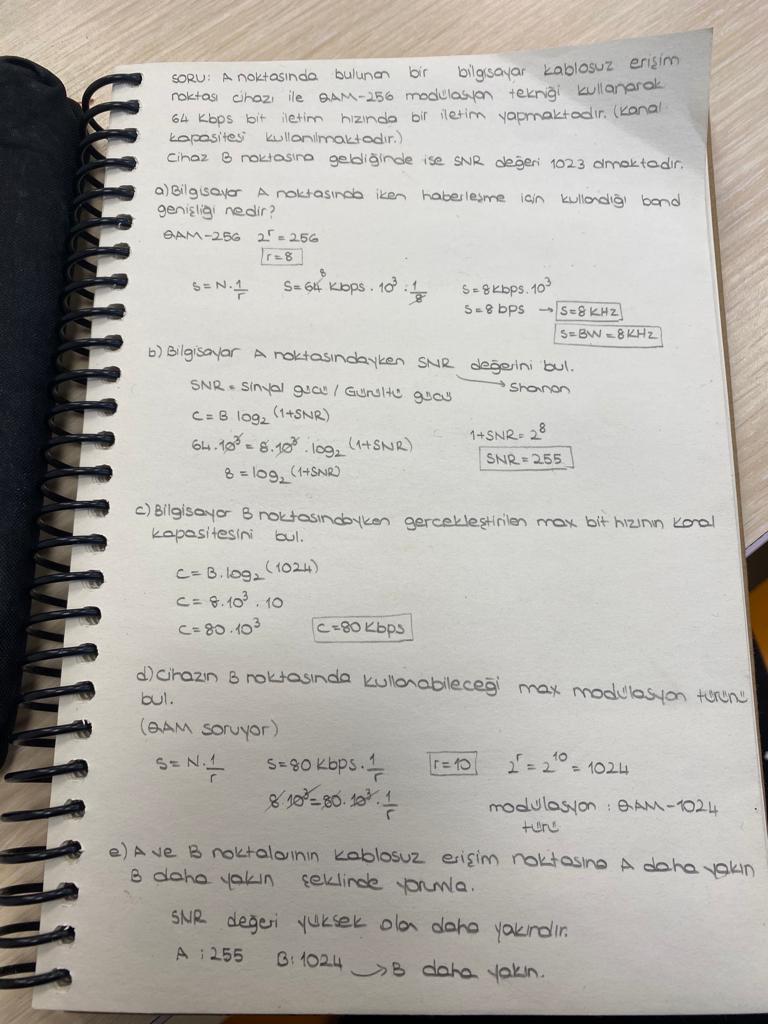 SORU: A noktasında bulunan bir bilgisayar kablosuz erişim
noktası cihazı ile QAM-256 modülasyon tekniği kullanarak
64 Kbps bit iletim hızında bir iletim yapmaktadır. (Kanal
kapasitesi kullanılmaktadır.)
Cihaz B noktasına geldiğinde ise SNR değeri 1023 olmaktadır.
a) Bilgisayar A noktasında iken haberleşme için kullandığı band
genişliği nedir?
QAM-256 2^r = 256
r=8
S = N.1/r S = 64 8 Kbps.10^3.1/8 S = 8 Kbps.10^3
S = 8 bps → S = 8 KHz
S = BW = 8 KHz
b) Bilgisayar A noktasındayken SNR değerini bul.
SNR = Sinyal gücü / Gürültü gücü → Shanon
C = B log2 (1+SNR)
64.10^3 = 8.10^3 . log2 (1+SNR) 1+SNR = 2^8
8 = log2 (1+SNR) SNR = 255
c) Bilgisayar B noktasındayken gerçekleştirilen max bit hızının kanal
kapasitesini bul.
C = B.log2 (1024)
C = 8.10^3 . 10
C = 80.10^3 C = 80 Kbps
d) Cihazın B noktasında kullanabileceği max modülasyon türünü
bul.
(QAM soruyor)
S = N.1/r S = 80 Kbps.1/r r=10 2^r = 2^10 = 1024
8.10^3 = 80.10^3.1/r modülasyon : QAM-1024
türü
e) A ve B noktalarının kablosuz erişim noktasına A daha yakın
B daha yakın şeklinde yorumla.
SNR değeri yüksek olan daha yakındır.
A : 255 B: 1024 → B daha yakın.